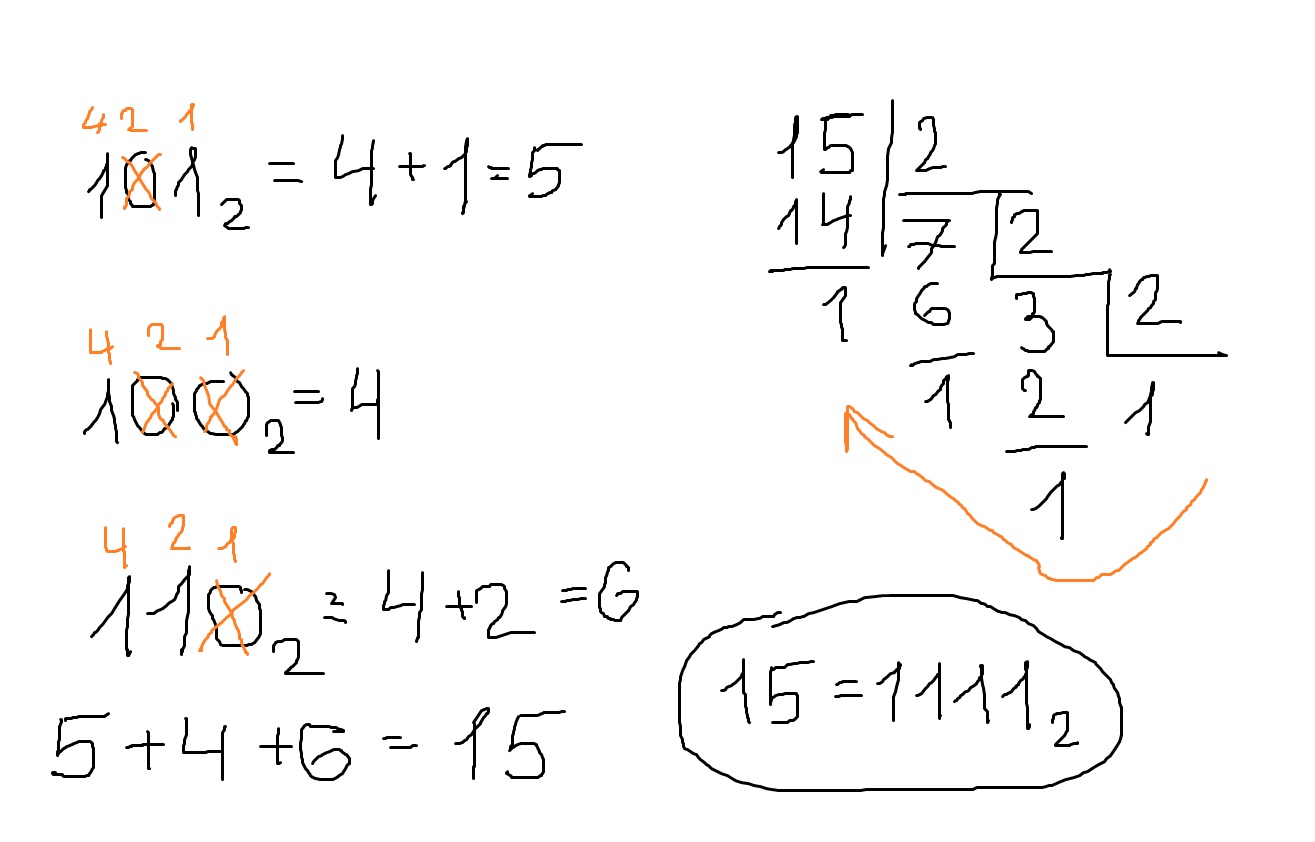 4 2 1
101₂ = 4 + 1 = 5
4 2 1
100₂ = 4
4 2 1
110₂ = 4 + 2 = 6
5 + 4 + 6 = 15
15 2
14 7 2
1 6 3 2
1 2 1
1
15 = 1111₂